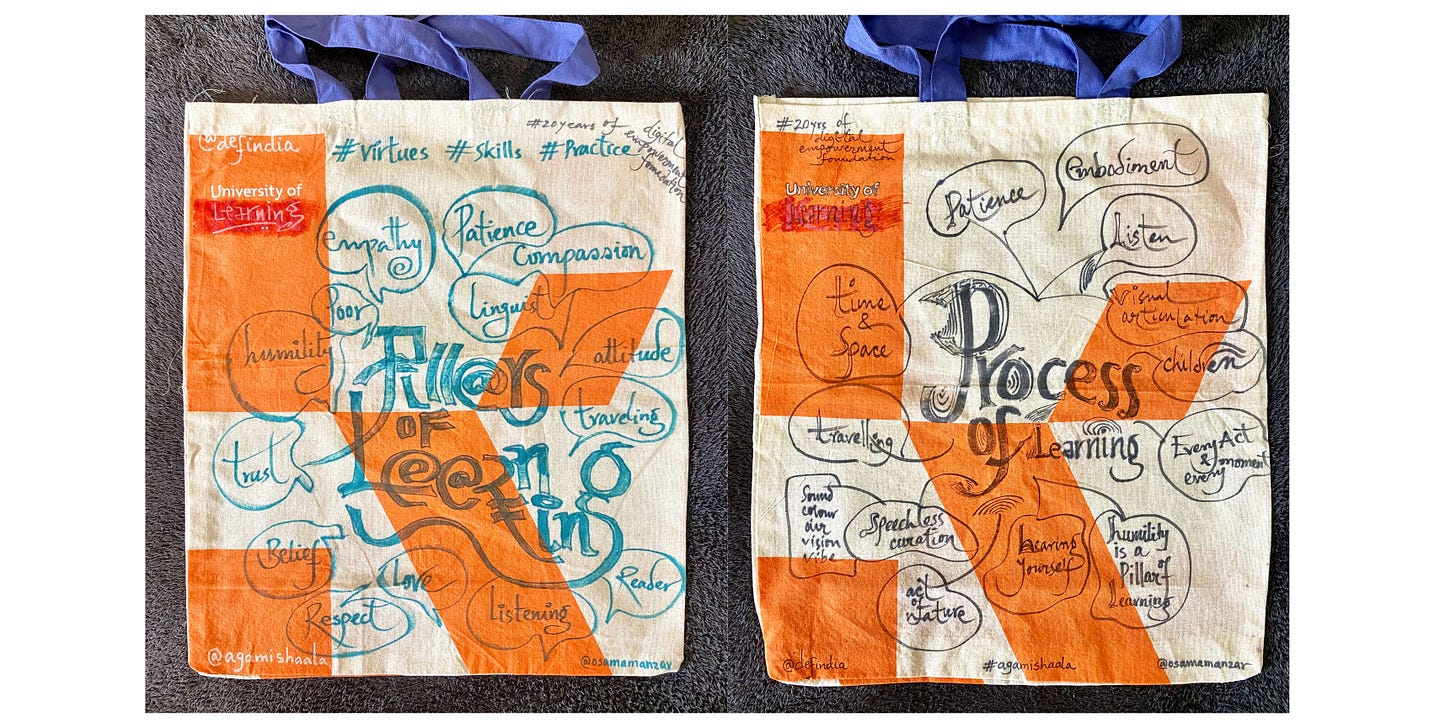 #20years of
digital
empowerment
foundation
@defindia
#Virtues #Skills #Practice
University of
Learning
empathy
Patience
Compassion
Poor
Linguist
humility
attitude
Pillars
OF
Le@rning
traveling
trust
Belief
Love
Reader
Respect
Listening
@agamishaala
@osamamanzar
#20yrs of
digital
empowerment
foundation
University of
Learning
Patience
embodiment
Listen
time
&
Space
visual
articulation
children
Process
of Learning
travelling
Every Act
& moment
every
Sound
colour
air
vision
vibe
Speechless
curation
hearing
yourself
humility
is a
Pillar of
Learning
act
of
Nature
@defindia
#agamishaala
@osamamanzar